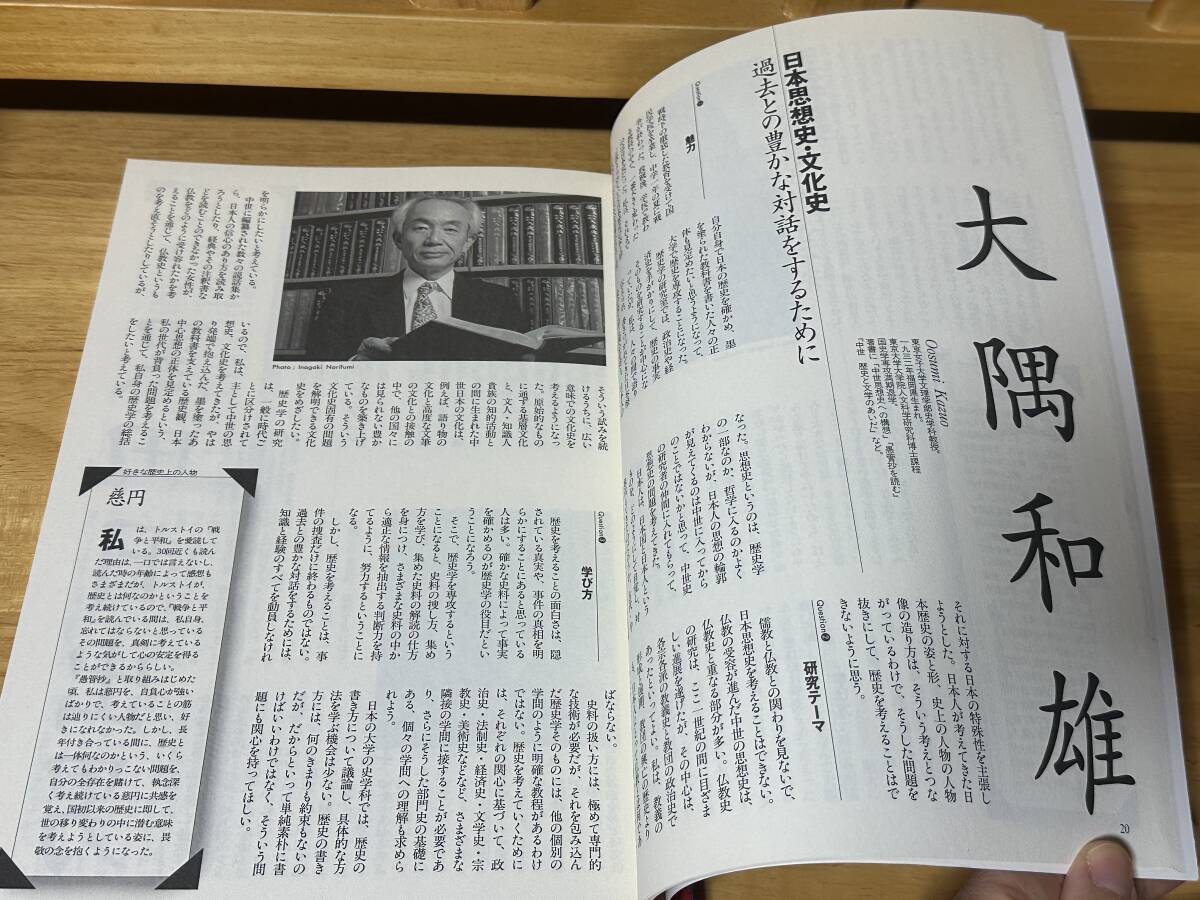 大隅和雄
Oosumi Kazuo
東京女子大学文理学部史学科教授。
一九三二年福岡県生まれ。
東京大学大学院人文科学研究科博士課程
国史学専攻満期退学。
著書に「中世思想史への構想」「愚管抄を読む」
「中世 歴史と文学のあいだ」など。
日本思想史・文化史
過去との豊かな対話をするために
魅力
自分自身で日本の歴史を確かめ、墨
を塗られた教科書を書いた人々の正
体も見定めたいと思うようになって、
大学で歴史を専攻することになった。
歴史学の研究室では、政治史や経
なった。思想史というのは、歴史学
の一部なのか、哲学に入るのかよく
わからないが、日本人の思想の輪郭
が見えてくるのは中世に入ってから
のことではないかと思って、中世史
の研究者の仲間に入れてもらって、
思想史の問題を考えてきた。
それに対する日本の特殊性を主張し
ようとした。日本人が考えてきた日
本歴史の姿と形、史上の人物の人物
像の造り方は、そういう考えとつな
がっているわけで、そうした問題を
抜きにして、歴史を考えることはで
きないように思う。
Question
研究テーマ
儒教と仏教との関わりを見ないで、
日本思想史を考えることはできない。
仏教の受容が進んだ中世の思想史は、
仏教史と重なる部分が多い。仏教史
の研究は、ここ一世紀の間に目ざま
しい進展を遂げたが、その中心は、
各宗各派の教義史と教団の政治史で
あったといってよい。私は、教義の
20
を明らかにしたいと考えている。
中世に編纂された数々の説話集か
ら、日本人の信心のあり方を読み取
ろうとしたり、経典やその注釈書な
どを読むことのできなかった女性が、
仏教をどのように受け容れたかを考
えることを通じて、仏教史というも
のを考え直そうとしたりしているが、
Photo ; Inagaki Norifumi
そういう試みを続
けるうちに、広い
意味での文化史を
考えるようになっ
た。原始的なもの
に通ずる基層文化
と、文人・知識人
貴族の知的活動と
の間に生まれた中
世日本の文化は、
例えば、語り物の
文化と高度な文筆
の文化との接触の
中で、他の国々に
は見られない豊か
なものを築き上げ
ている。そういう
文化史固有の問題
を解明できる文化
史をめざしたい。
歴史学の研究
は、一般に時代ご
とに区分されてて
いるので、私は、
主として中世の思
想史、文化史を考えてきたが、やは
り発端で抱え込んだ、墨を塗ったあ
の教科書を支えていた歴史観、日本
中心思想の正体を見定めるという、
私の世代が背負った問題を考えるこ
とを通じて、私自身の歴史学の総括
をしたいと考えている。
Question
学び方
歴史を考えることの面白さは、隠
されている真実や、事件の真相を明
らかにすることにあると思っている
人は多い。確かな史料によって事実
を確かめるのが歴史学の役目だとい
うことになろう。
そこで、歴史学を専攻するという
ことになると、史料の捜し方、集め
方を学び、集めた史料の解読の仕方
を身につけ、さまざまな史料の中か
ら適正な情報を抽出する判断力を持
てるように、努力するということに
なる。
しかし、歴史を考えることは、事
件の捜査だけに終わるものではない。
過去との豊かな対話をするためには、
知識と経験のすべてを動員しなけれ
ばならない。
史料の扱い方には、極めて専門的
な技術が必要だが、それを包み込ん
だ歴史学そのものには、他の個別の
学問のように明確な教程があるわけ
ではない。歴史を考えていくために
は、それぞれの関心に基づいて、政
治史・法制史・経済史・文学史・宗
教史・美術史などなど、さまざまな
隣接の学問に接することが必要であ
り、さらにそうした部門史の基礎に
ある、個々の学問への理解も求めら
れよう。
日本の大学の史学科では、歴史の
書き方について議論し、具体的な方
法を学ぶ機会は少ない。歴史の書き
方には、何のきまりも約束もないの
だが、だからといって単純素朴に書
けばいいわけではなく、そういう問
題にも関心を持ってほしい。
好きな歴史上の人物
慈円
私は、トルストイの『戦
争と平和』を愛読して
いる。30回近くも読ん
だ理由は、一口では言えないし、
読んだ時の年齢によって感想も
さまざまだが、トルストイが、
歴史とは何なのかということを
考え続けているので、『戦争と平
和』を読んでいる間は、私自身、
忘れてはならないと思っている
その問題を、真剣に考えている
ような気がして心の安定を得る
ことができるからしい。
『愚管抄』と取り組みはじめた
頃、私は慈円を、自負心が強い
ばかりで、考えていることの筋
は辿りにくい人物だと思い、好
きになれなかった。しかし、長
年付き合っている間に、歴史と
は一体何なのかという、いくら
考えてもわかりっこない問題を、
自分の全存在を賭けて、執念深
く考え続けている慈円に共感を
覚え、国初以来の歴史に即して、
世の移り変わりの中に潜む意味
を考えようとしている姿に、畏
敬の念を抱くようになった。